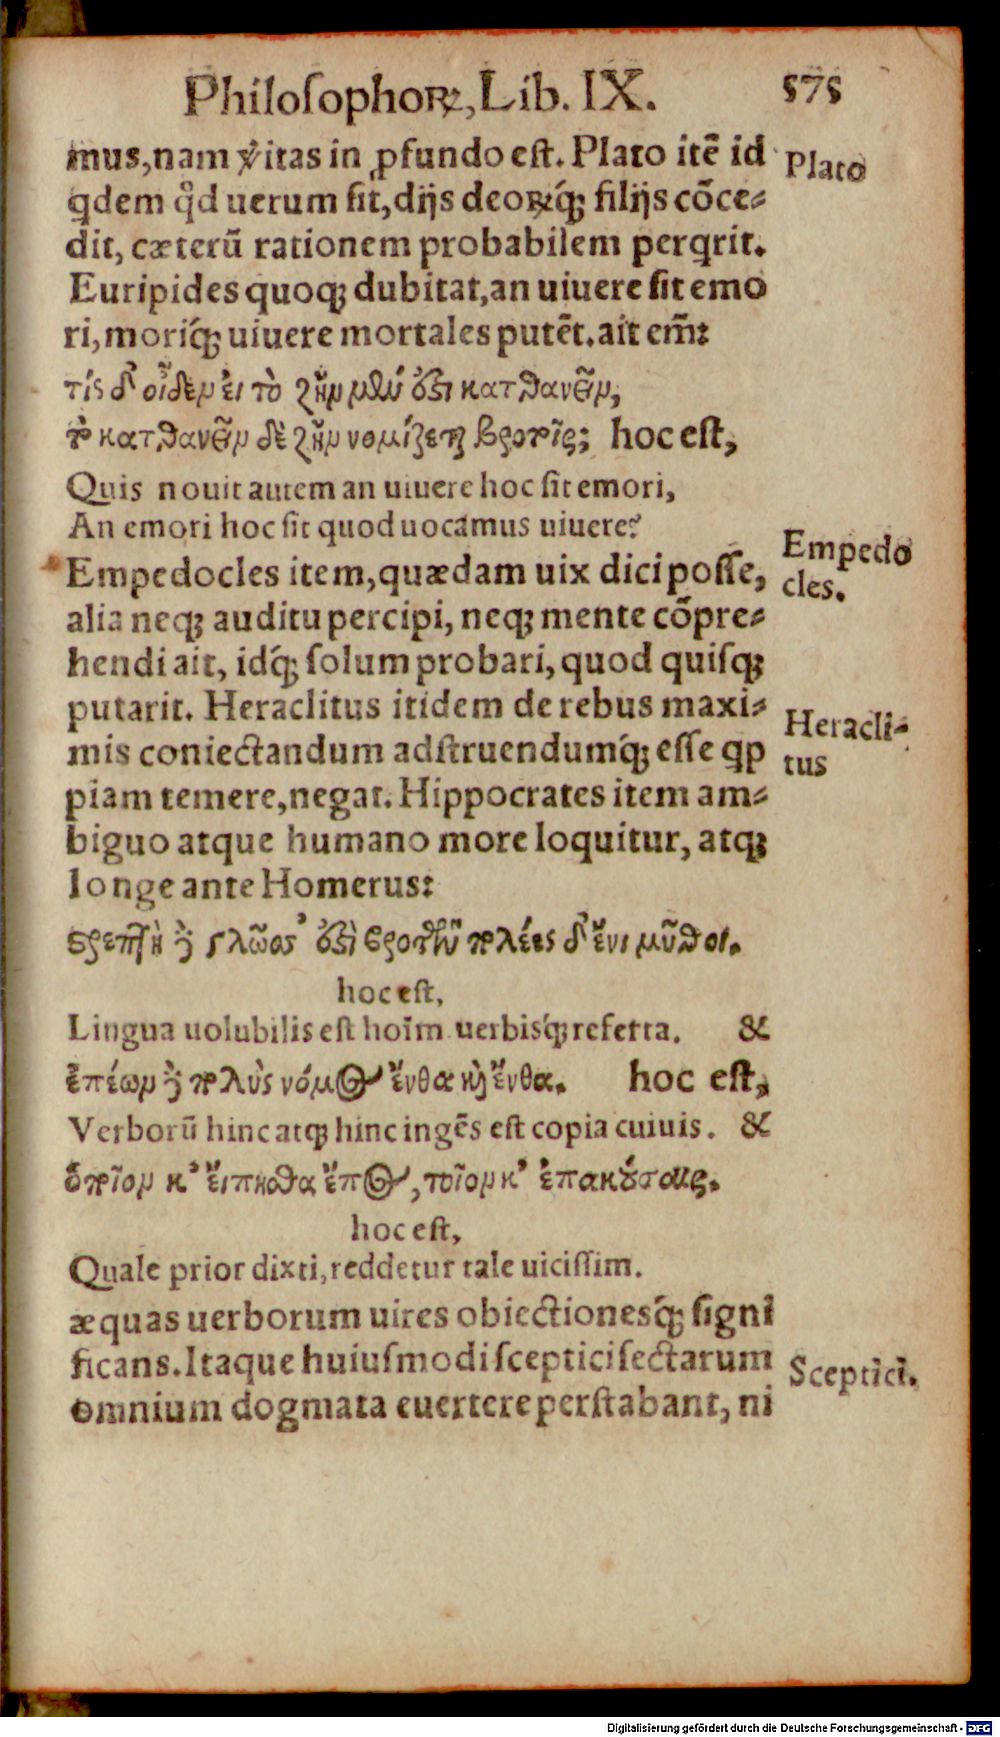 Philosophoꝝ, Lib. IX. 575
mus, nam ṽitas in ꝓfundo est. Plato itẽ id
Plato
qdem qđ uerum sit, dijs deoꝝq́ꝫ filijs cõce⸗
dit, cæterũ rationem probabilem perqrit.
Euripides quoqꝫ dubitat, an uiuere sit emo
ri, moriq́ꝫ uiuere mortales putẽt. ait em̃:
τίς δ' οἶδεν εἰ τὸ ζῆν μὲν ὅ ἐστι κατθανεῖν,
τὸ κατθανεῖν δὲ ζῆν νομίζεται βροτοῖς; hoc est,
Quis nouit autem an uiuere hoc sit emori,
An emori hoc sit quod uocamus uiuere?
Empedocles item, quædam uix dici posse,
Empedo
cles.
alia neqꝫ auditu percipi, neqꝫ mente cõpre⸗
hendi ait, idq́ꝫ solum probari, quod quisqꝫ
putarit. Heraclitus itidem de rebus maxi⸗
Heracli⸗
tus
mis coniectandum adstruendumq́ꝫ esse qp
piam temere, negat. Hippocrates item am⸗
biguo atque humano more loquitur, atqꝫ
longe ante Homerus:
στρεπτὴ δὲ γλῶσσ' ἐστὶ βροτῶν πολέες δ' ἔνι μῦθοι.
hoc est,
Lingua uolubilis est hoĩm uerbisq́ꝫ referta. &
ἐπέων δὲ πολὺς νόμος ἔνθα καὶ ἔνθα. hoc est,
Verborũ hinc atqꝫ hinc ingẽs est copia cuiuis. &
ὁποῖον κ' εἴπησθα ἔπος, τοῖον κ' ἐπακούσαις.
hoc est,
Quale prior dixti, reddetur tale uicissim.
æquas uerborum uires obiectionesq́ꝫ signi
ficans. Itaque huiusmodi sceptici sectarum
Sceptici.
omnium dogmata euertere perstabant, ni
Digitalisierung gefördert durch die Deutsche Forschungsgemeinschaft - DFG